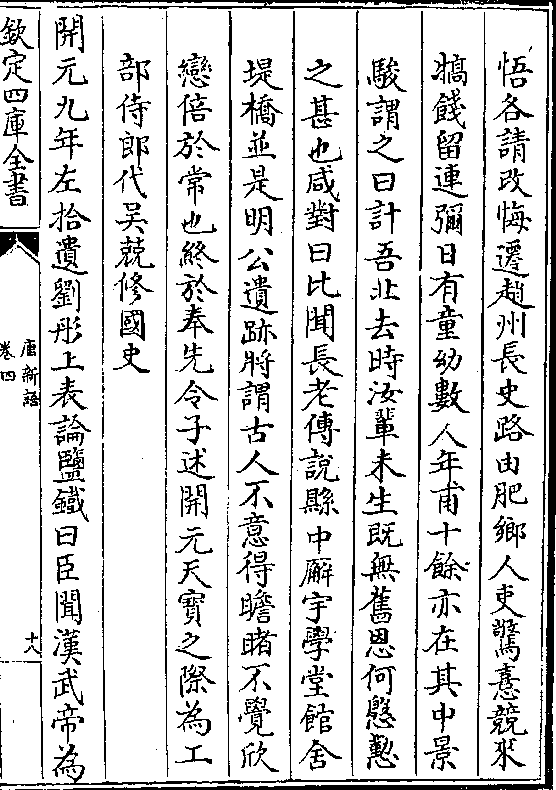 悟各請改悔遷趙州長史路由肥鄉人吏驚憙競來
犒餞留連彌日有童幼數人年甫十餘亦在其中景
駿謂之曰計吾北去時汝輩未生既無舊恩何慇懃
之甚也咸對曰比聞長老傳說縣中廨宇學堂館舍
堤橋並是明公遺跡將謂古人不意得瞻睹不覺欣
戀倍於常也終於奉先令子述開元天寶之際為工
部侍郎代吴兢修國史
開元九年左拾遺劉彤上表論鹽鐵曰臣聞漢武帝為
欽定四庫全書
唐新語
卷四
十八